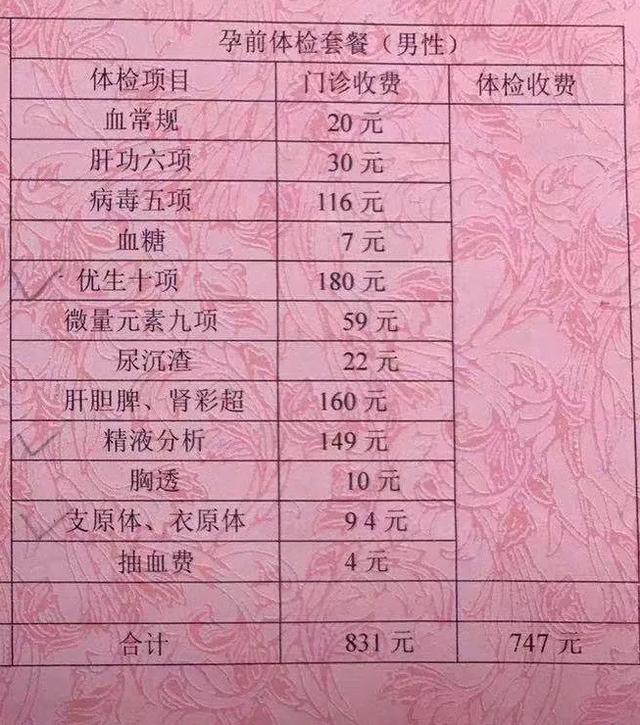 孕前体检套餐（男性）
体检项目 门诊收费 体检收费
血常规 20 元
肝功六项 30 元
病毒五项 116 元
血糖 7 元
优生十项 180 元
微量元素九项 59 元
尿沉渣 22 元
肝胆脾、肾彩超 160 元
精液分析 149 元
胸透 10 元
支原体、衣原体 9 4 元
抽血费 4 元
合计 831 元 747 元